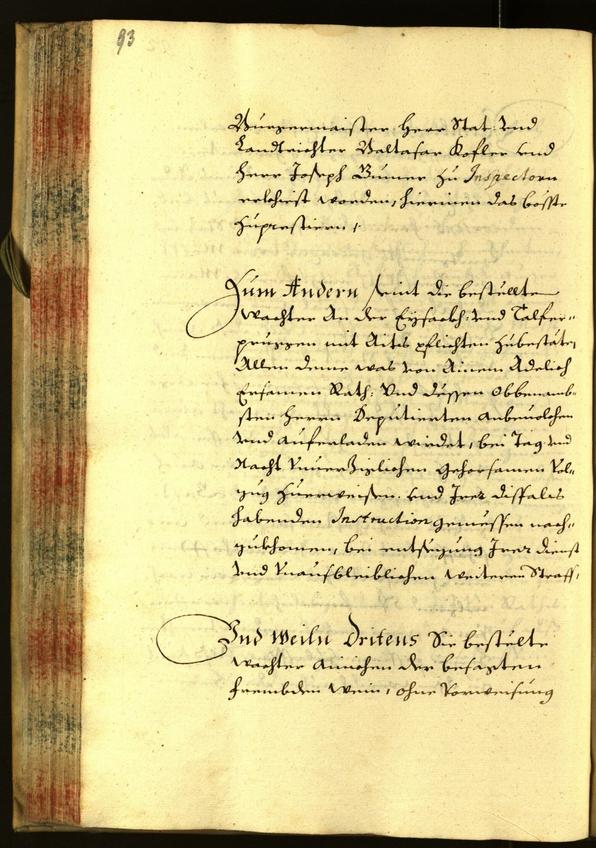 93
Burgermaister Herr Stat: vnd
Landtrichter Balthasar Kofler vnd
Herr Joseph Bumer zu Inspectorn
erkhiest worden, hierinen das bösste
zupræstiern,
Zum Andern seint die bestellte
wachter An der Eysackh: vnd Talfer¬
pruggen mit Aits pflichten zubestäte,
Allen deme was von Ainem Adelich
Ersamen Rath: Vnd dessen obbenamb¬
sten Herrn Deputierten anbeuolchen
vnd auferladen wirdet, bei Tag vnd
Nacht vnuerziglichen gehorsamen Vol¬
zug zuerweisen: vnd Irer dissfals
habenden Instruction gemessen nach¬
zukhomen, bei entsezung Irer dienst
vnd vnausbleiblichen weiteren Straff,
Vnd weiln Dritens Sie bestelte
wachter ainichen der besagten
frembden wein, ohne Vorweisung